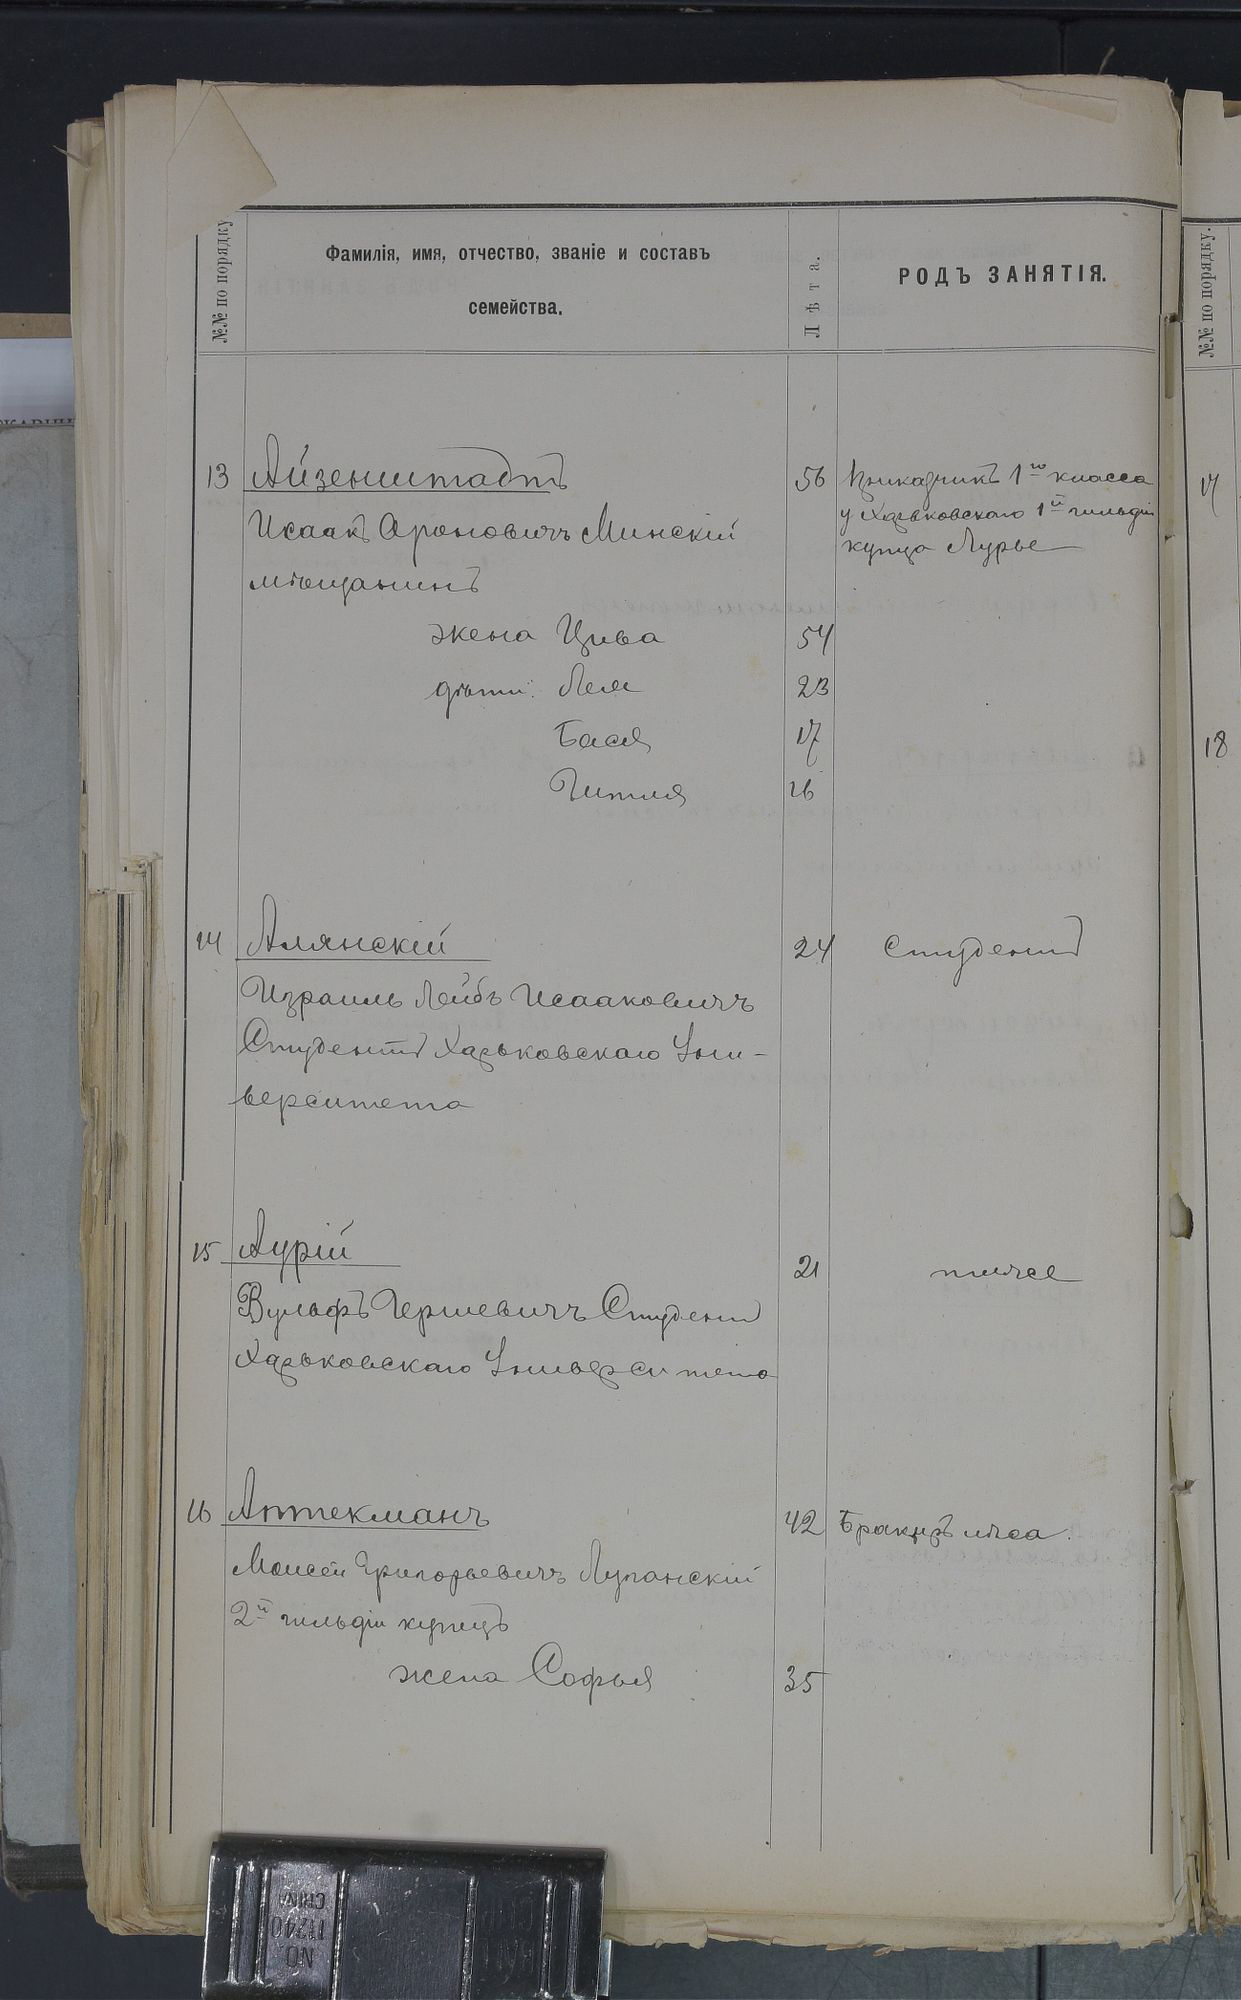 №№ по порядку
Фамилія, имя, отчество, званіе и составъ
семейства.
Лѣта.
РОДЪ ЗАНЯТІЯ.
№№ по порядку.
13 Айзенштадтъ 56 Прикащикъ 1го класса
Исаакъ Ароновичъ Минскій у Харьковскаго 1й гильдіи
мѣщанинъ купца Лурье
жена Цива 54
дѣти: Лея 23
Бася 17
Гитля 16
14 Алянскій 24 Студентъ
Израиль Лейбъ Исааковичъ
Студентъ Харьковскаго Уни-
верситета
15 Аурій 21 тоже
Вульфъ Гершевичъ Студентъ
Харьковскаго Университета
16 Аптекманъ 42 Бракеръ лѣса
Моисей Григорьевичъ Луганскій
2й гильдіи купецъ
жена Софья 35
17
18
NO.
11240
CHINA